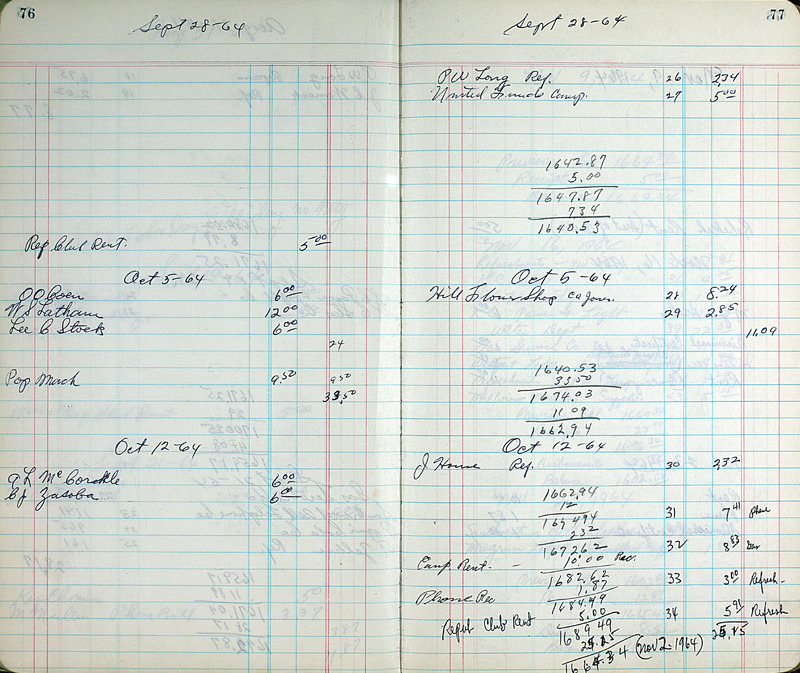 76
Sept 28-64
Rep Club Rent. 5.00
Oct 5-64
6.00
W S Latham 12.00
Lee C Stocks 6.00
24
Pop Mach 9.50 9.50
33.50
Oct 12-64
McCorckle 6.00
Zasoba 6.00
77
Sept 28-64
PW Long Ref. 26 2.34
United Funds Camp. 27 5.00
1642.87
5.00
1647.87
7 34
1640.53
Oct 5-64
Hill Flower Shop 28 8.24
29 2.85
11.09
1640.53
33 50
1674.03
11 09
1662.94
Oct 12-64
J House Ref. 30 2.32
1662.94
12
1674 94 31 7.41 Phone
2 32
1672 62 32 8.83 Gas
Camp. Rent. - 10.00 Rec.
1682.62 33 3.00 Refresh-
Phone Rec 1.87
1684.49
Repub Club Rent 5.00 34 5.01 Refresh
1689 49
25.15 (Nov 2 1964)